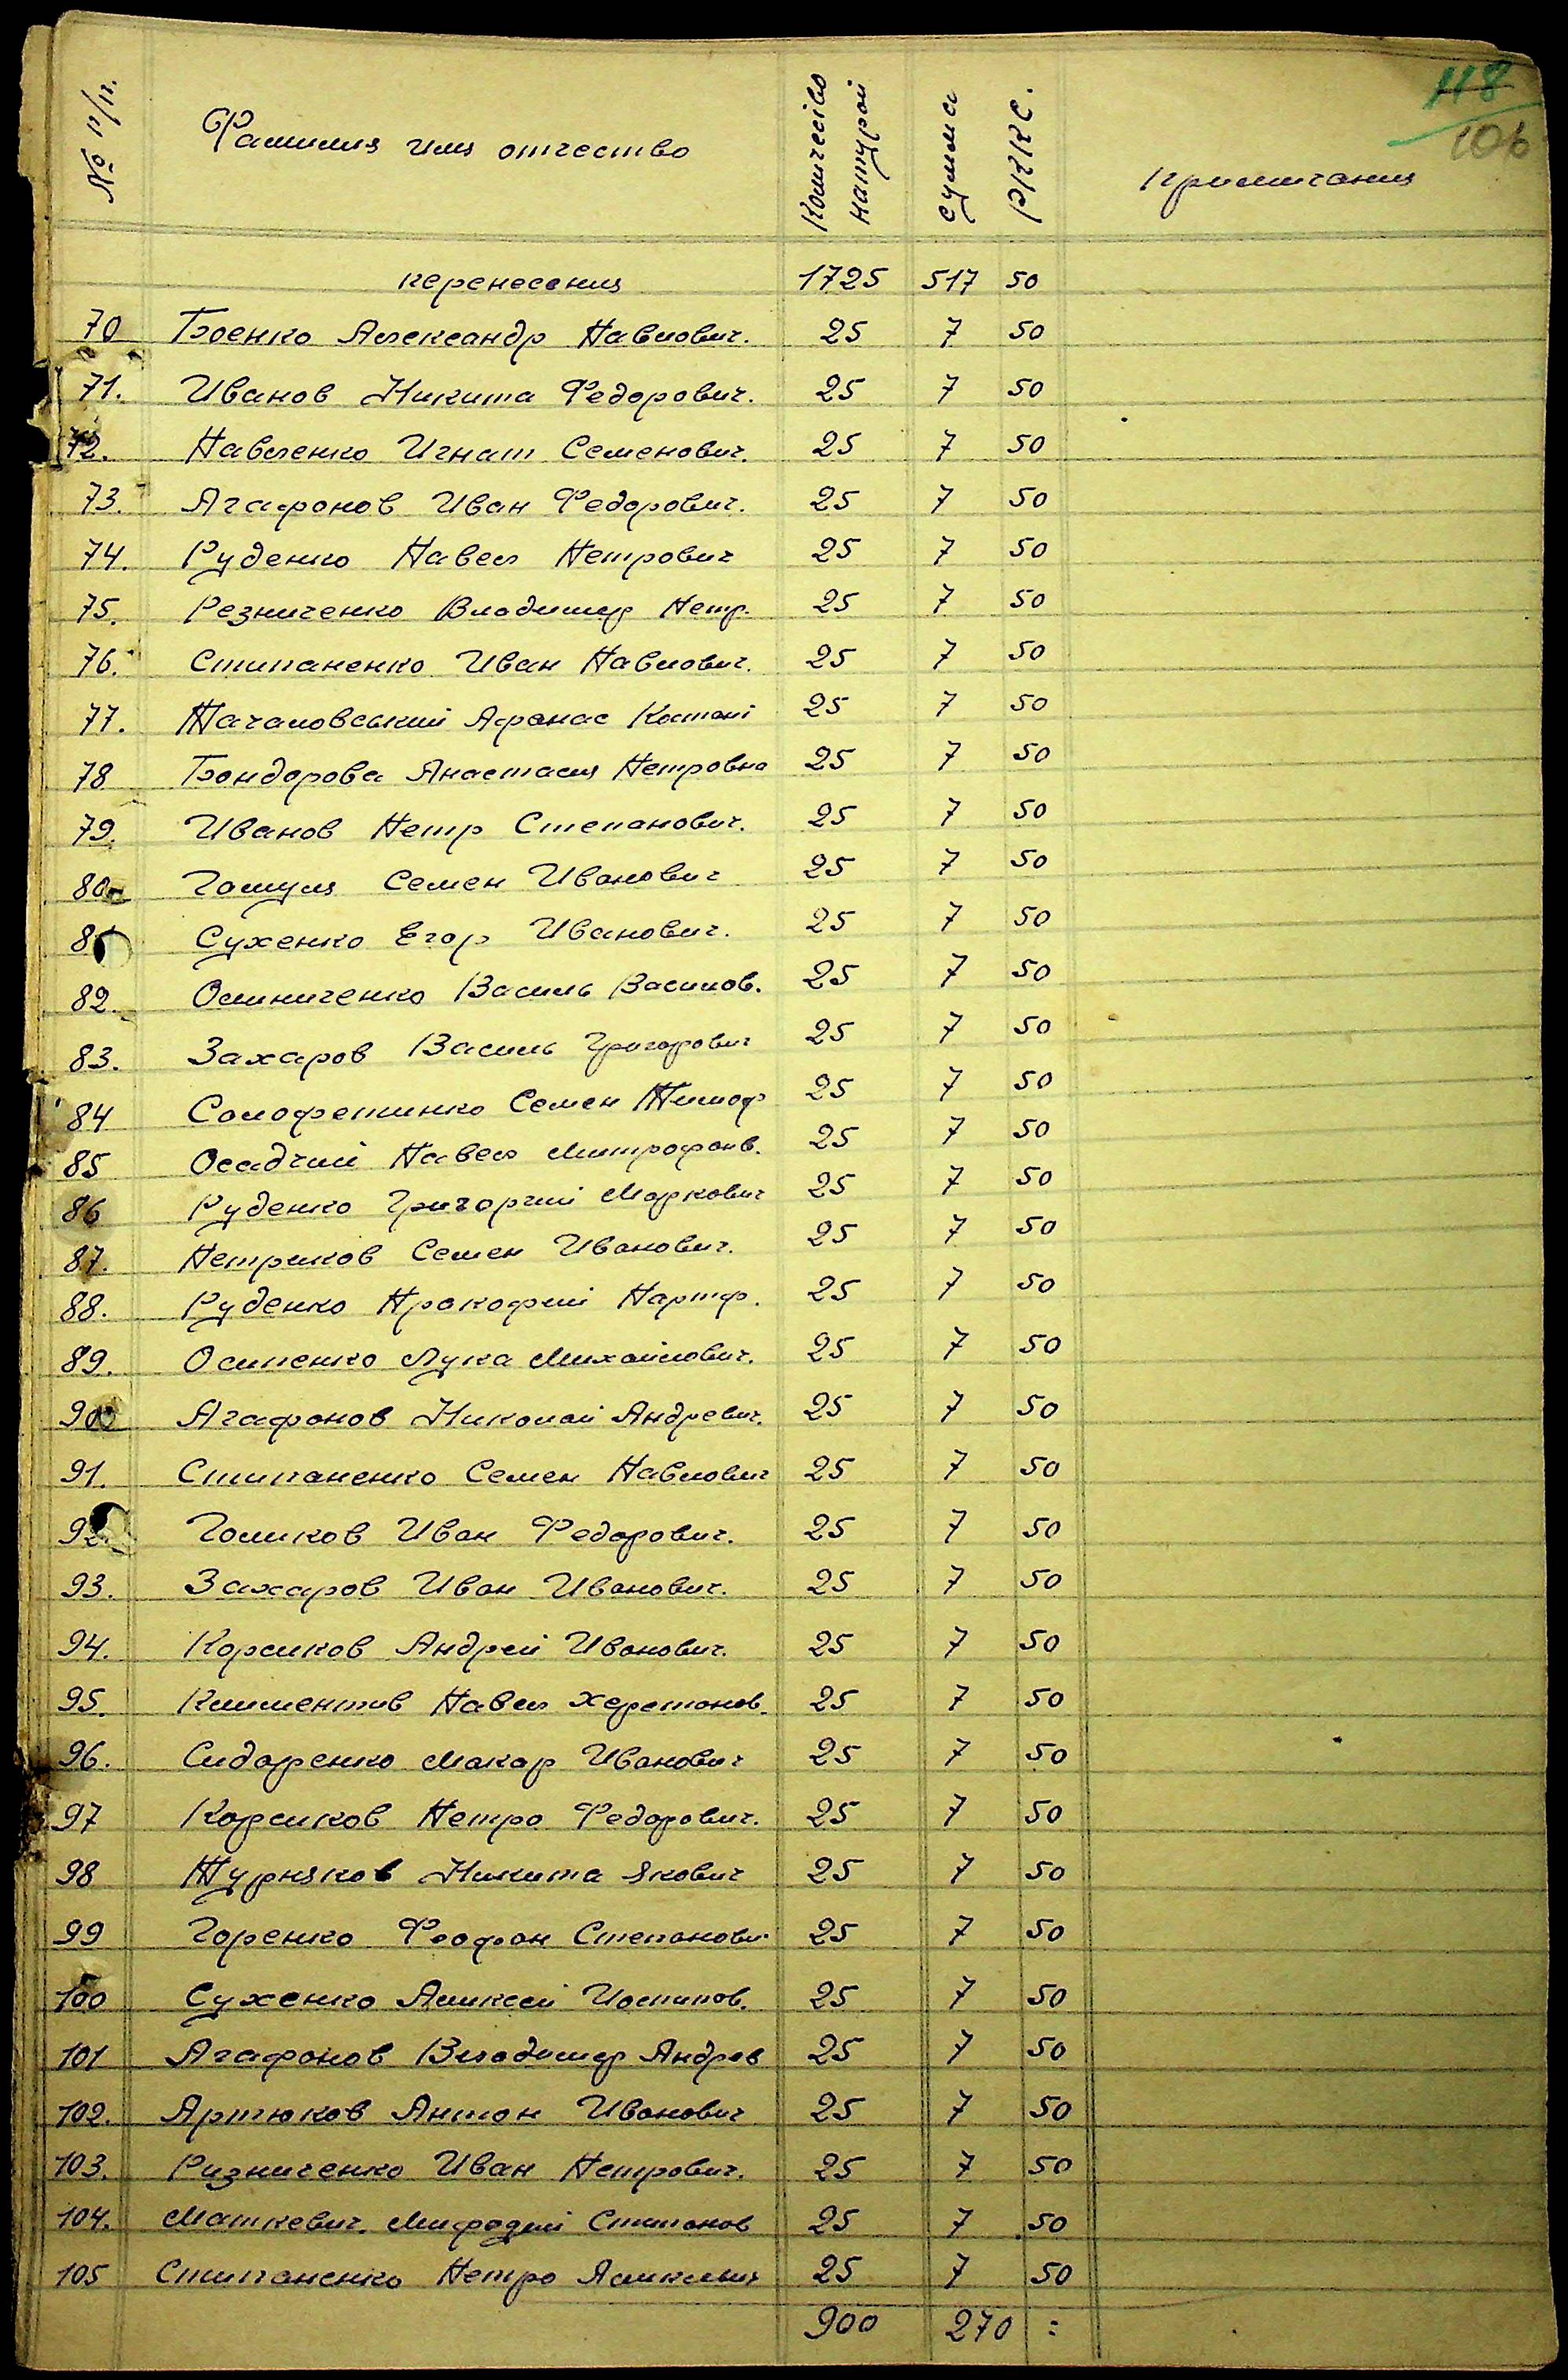 118
106
№ п/п. Фамилия имя отчество Количество натурой сумма РККС. примичания
перенесения 1725 517 50
70 Боенко Александр Павлович. 25 7 50
71. Иванов Никита Федорович. 25 7 50
72. Павленко Игнат Семенович. 25 7 50
73. Агафонов Иван Федорович. 25 7 50
74. Руденко Павел Петрович 25 7 50
75. Резниченко Владимир Петр. 25 7 50
76. Стипаненко Иван Павлович. 25 7 50
77. Тачаловський Афанас 25 7 50
78 Бондорова Анастасия Петровна 25 7 50
79. Иванов Петр Степанович. 25 7 50
80 Гошуля Семен Иванович 25 7 50
8 Сухенко Егор Иванович. 25 7 50
82. Осиниченко Василь Василов. 25 7 50
83. Захаров Василь Григорович 25 7 50
84 Солофетинко Семен Тимоф 25 7 50
85 Осадчий Павел Митрофонв. 25 7 50
86 Руденко Григорий Маркович 25 7 50
87. Петриков Семен Иванович. 25 7 50
88. Руденко Прокофий Партф. 25 7 50
89. Осипенко Лука Михайлович. 25 7 50
90 Агафонов Николай Андревич. 25 7 50
91. Стипаненко Семен Павлович 25 7 50
92. Голиков Иван Федорович. 25 7 50
93. Захаров Иван Иванович. 25 7 50
94. Корсиков Андрей Иванович. 25 7 50
95. Климентив Павел Херетонов. 25 7 50
96. Сидоренко Макар Иванович 25 7 50
97 Корсиков Петро Федорович. 25 7 50
98 Турняков Никита Якович 25 7 50
99 Горенко Феофан Степанович 25 7 50
100 Сухенко Аликсей Иостипов. 25 7 50
101 Агафонов Владимир Андрев 25 7 50
102. Артюков Антон Иванович 25 7 50
103. Ризниченко Иван Петрович. 25 7 50
104. Маткевич. Мифодий Стипанов 25 7 50
105 Стипаненко Петро Аликсевич 25 7 50
900 270 =